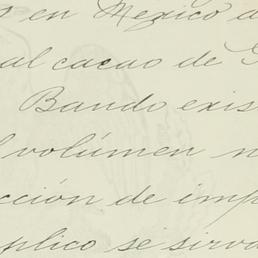 en Mexico
al cacao de
Bando exis
volúmen
cción de imp
plico se sirva